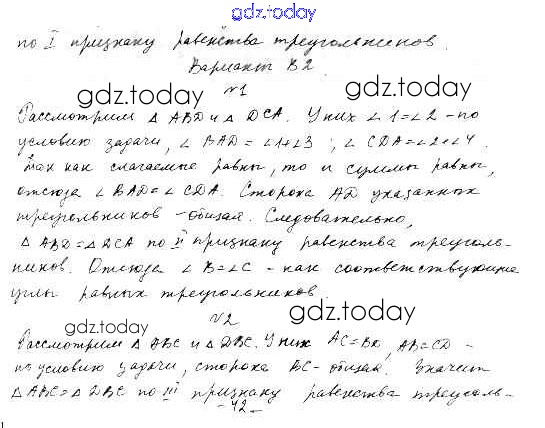 gdz.today
по I признаку равенства треугольников.
Вариант В2
№1
gdz.today gdz.today
Рассмотрим △ ABD и △ DCA. У них ∠1=∠2 - по
условию задачи, ∠BAD=∠1+∠3 ; ∠CDA=∠2+∠4.
Так как слагаемые равны, то и суммы равны,
отсюда ∠BAD=∠CDA. Сторона AD указанных
треугольников - общая. Следовательно,
△ABD=△DCA по II признаку равенства треуголь-
ников. Отсюда ∠B=∠C - как соответствующие
углы равных треугольников.
gdz.today
№2
gdz.today
Рассмотрим △ ABC и △ DBC. У них AC=BD, AB=CD -
по условию задачи, сторона BC - общая. Значит
△ABC=△DBC по III признаку равенства треуголь-
-42-